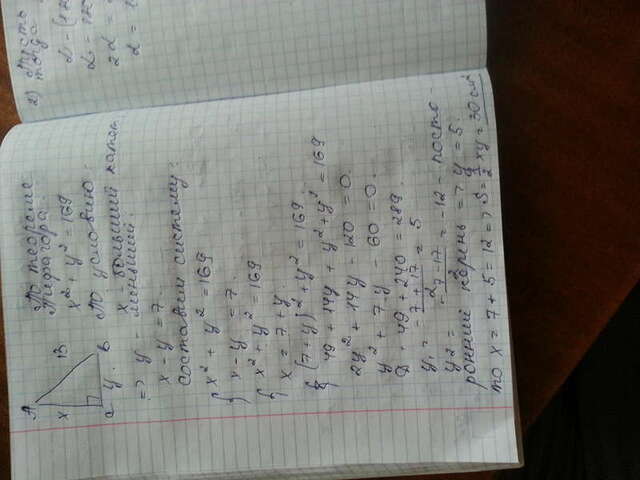 A
x
13
C y. B
По теореме
Пифагора:
x² + y² = 169
По условию:
x - больший катет
=> y - меньший.
x - y = 7.
составим систему:
{ x² + y² = 169
x - y = 7.
{ x² + y² = 169
x = 7 + y.
{ (7+y)² + y² = 169
49 + 14y + y² + y² = 169
2y² + 14y - 120 = 0.
y² + 7y - 60 = 0.
D = 49 + 240 = 289.
y₁ = (-7 + 17)/2 = 5
y₂ = (-7 - 17)/2 = -12 - посто-
ронний корень => y = 5.
то x = 7 + 5 = 12 => S = 1/2 xy = 30 см²
2) Пусть
тогда